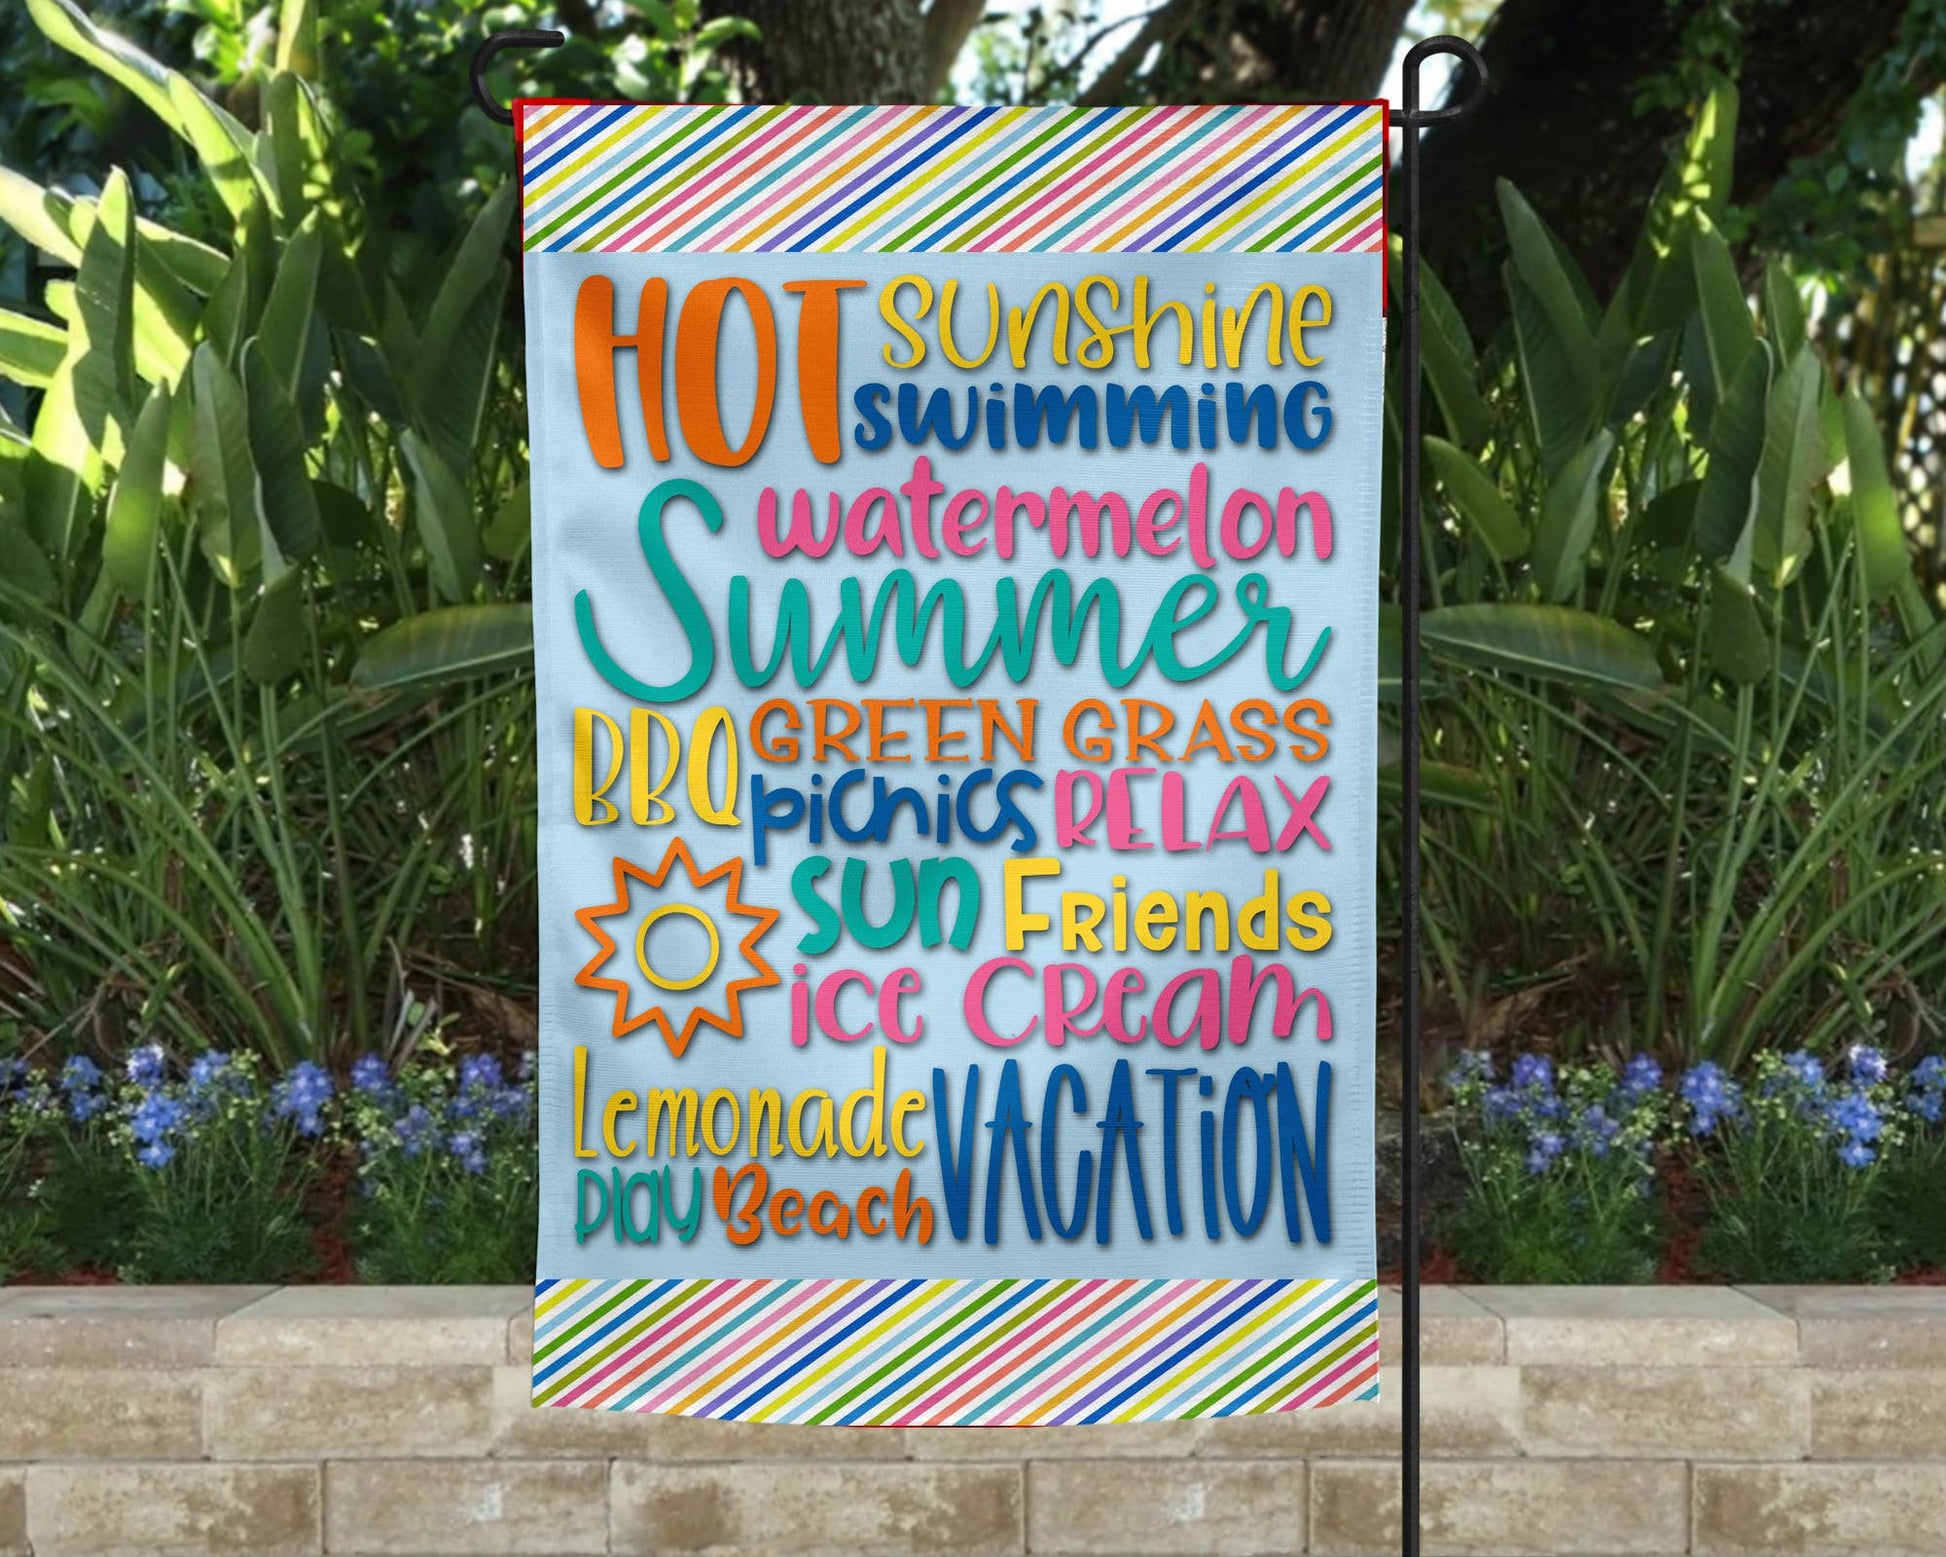 HOT sunshine
swimming
watermelon
Summer
BBQ GREEN GRASS
picnics RELAX
sun Friends
ice cream
Lemonade VACATiON
play Beach